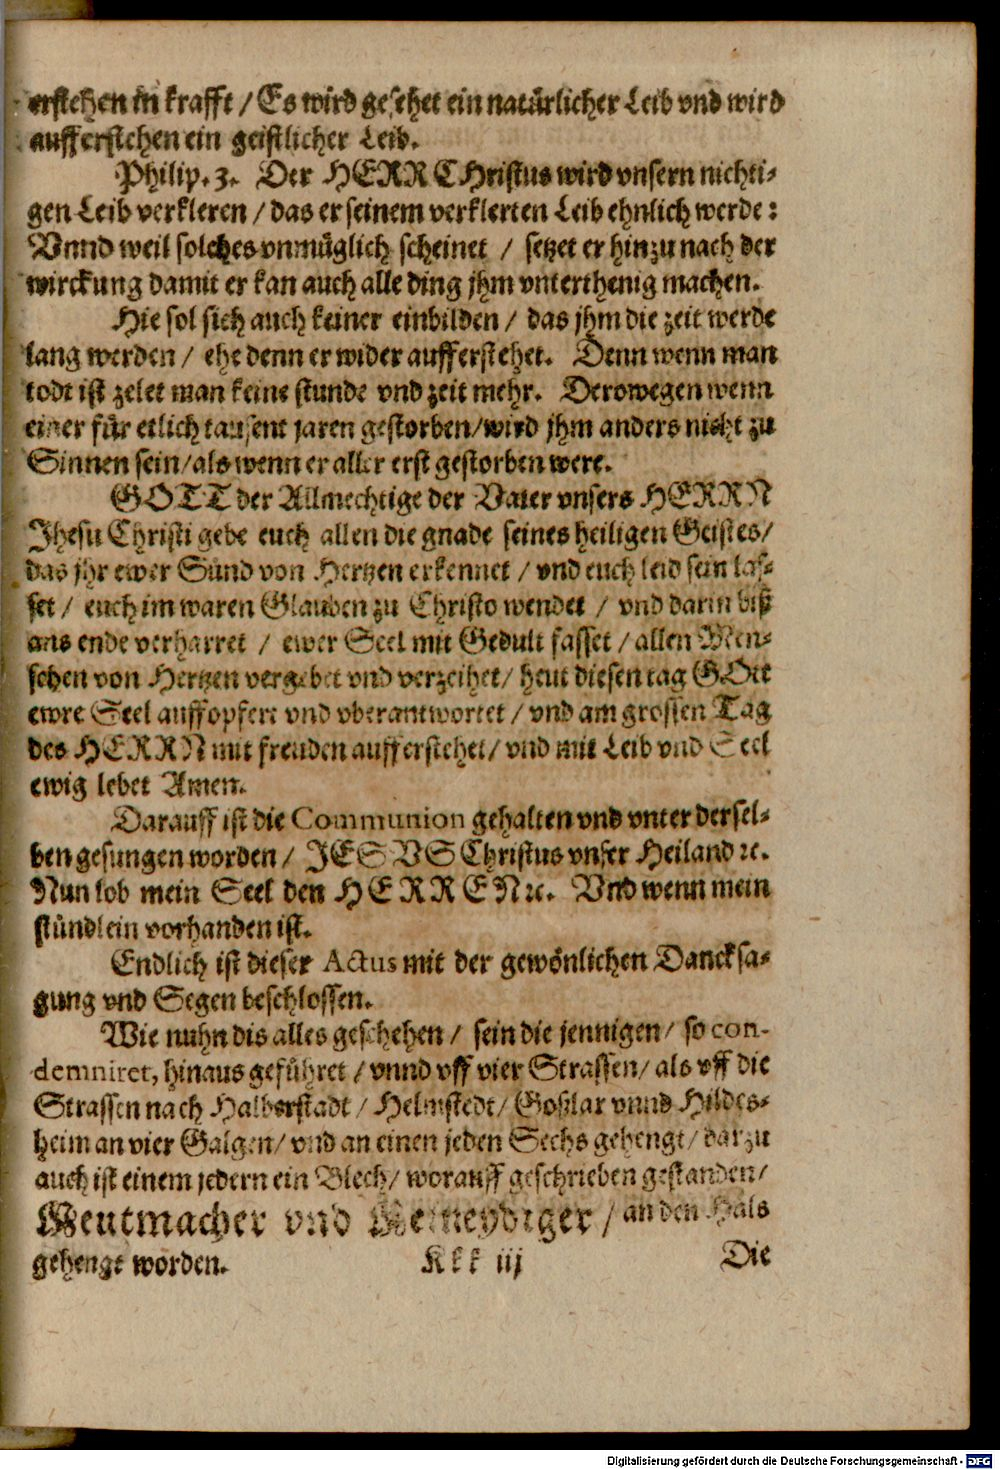 erstehen in krafft / Es wird gesehet ein natürlicher Leib vnd wird
aufferstehen ein geistlicher Leib.
Philip. 3. Der HERR CHristus wird vnsern nichti-
gen Leib verkleren / das er seinem verklerten Leib ehnlich werde:
Vnnd weil solches vnmüglich scheinet / setzet er hinzu nach der
wirckung damit er kan auch alle ding jhm vnterthenig machen.
Hie sol sich auch keiner einbilden / das jhm die zeit werde
lang werden / ehe denn er wider aufferstehet. Denn wenn man
todt ist zelet man keine stunde vnd zeit mehr. Derowegen wenn
einer für etlich tausent jaren gestorben/wird jhm anders nicht zu
Sinnen sein/als wenn er aller erst gestorben were.
GOTT der Allmechtige der Vater vnsers HERRN
Jhesu Christi gebe euch allen die gnade seines heiligen Geistes/
das jhr ewer Sünd von Hertzen erkennet / vnd euch leid sein las-
set / euch im waren Glauben zu Christo wendet / vnd darin biß
ans ende verharret / ewer Seel mit Gedult fasset / allen Men-
schen von Hertzen vergebet vnd verzeihet/ heut diesen tag GOtt
ewre Seel auffopfert vnd vberantwortet / vnd am grossen Tag
des HERRN mit freuden aufferstehet/ vnd mit Leib vnd Seel
ewig lebet Amen.
Darauff ist die Communion gehalten vnd vnter dersel-
ben gesungen worden / JESVS Christus vnser Heiland ꝛc.
Nun lob mein Seel den HERREN ꝛc. Vnd wenn mein
stündlein vorhanden ist.
Endlich ist dieser Actus mit der gewönlichen Dancksa-
gung vnd Segen beschlossen.
Wie nuhn dis alles geschehen / sein die jennigen/ so con-
demniret, hinaus geführet / vnnd vff vier Strassen/ als vff die
Strassen nach Halberstadt / Helmstedt/ Goslar vnnd Hildes-
heim an vier Galgen/ vnd an einen jeden Sechs gehengt/ darzu
auch ist einem jedern ein Blech/ worauff geschrieben gestanden/
Meutmacher vnd Meineydiger / an den Hals
gehengt worden. Kkk iij Die
Digitalisierung gefördert durch die Deutsche Forschungsgemeinschaft - DFG